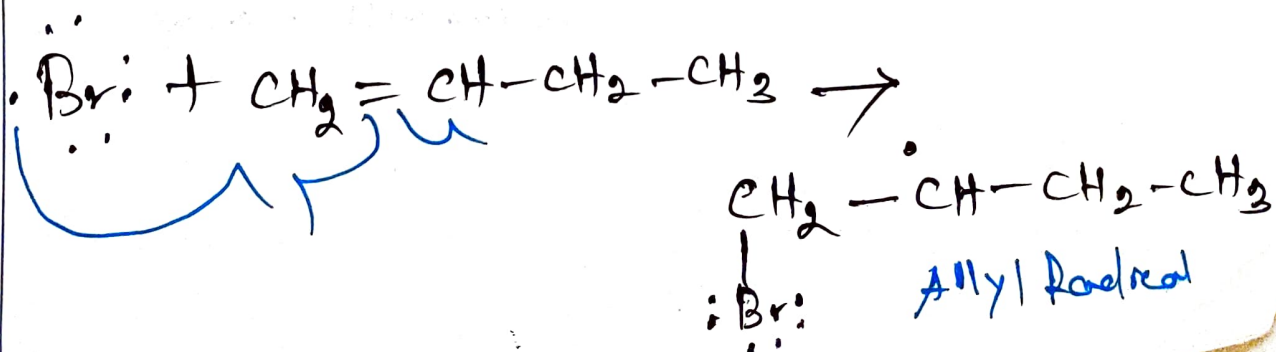 ·Br: + CH₂ = CH-CH₂-CH₃ →
CH₂ - ĊH-CH₂-CH₃
:Br:
Allyl Radical